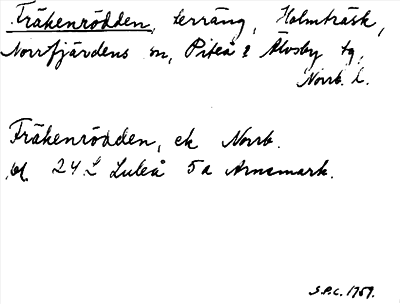 Fräkenrödden, terräng, Holmträsk,
Norrfjärdens sn, Piteå & Älvsby tg,
Norrb. l.
Fräkenrödden, ek Norrb.
bl. 24 L Luleå 5a Arnemark.
S.P.C. 1959.